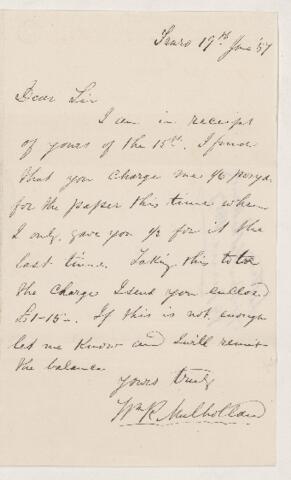 Truro 19th Jany '57
Dear Sir
I am in receipt
of yours of the 15th. I found
that you charge me
for the paper this time when
I only gave you for it the
last time. Taking this to be
the charge I send you enclosed
£1-15-. If this is not enough
let me know and I will remit
the balance
yours truly
Wm R Mulholland